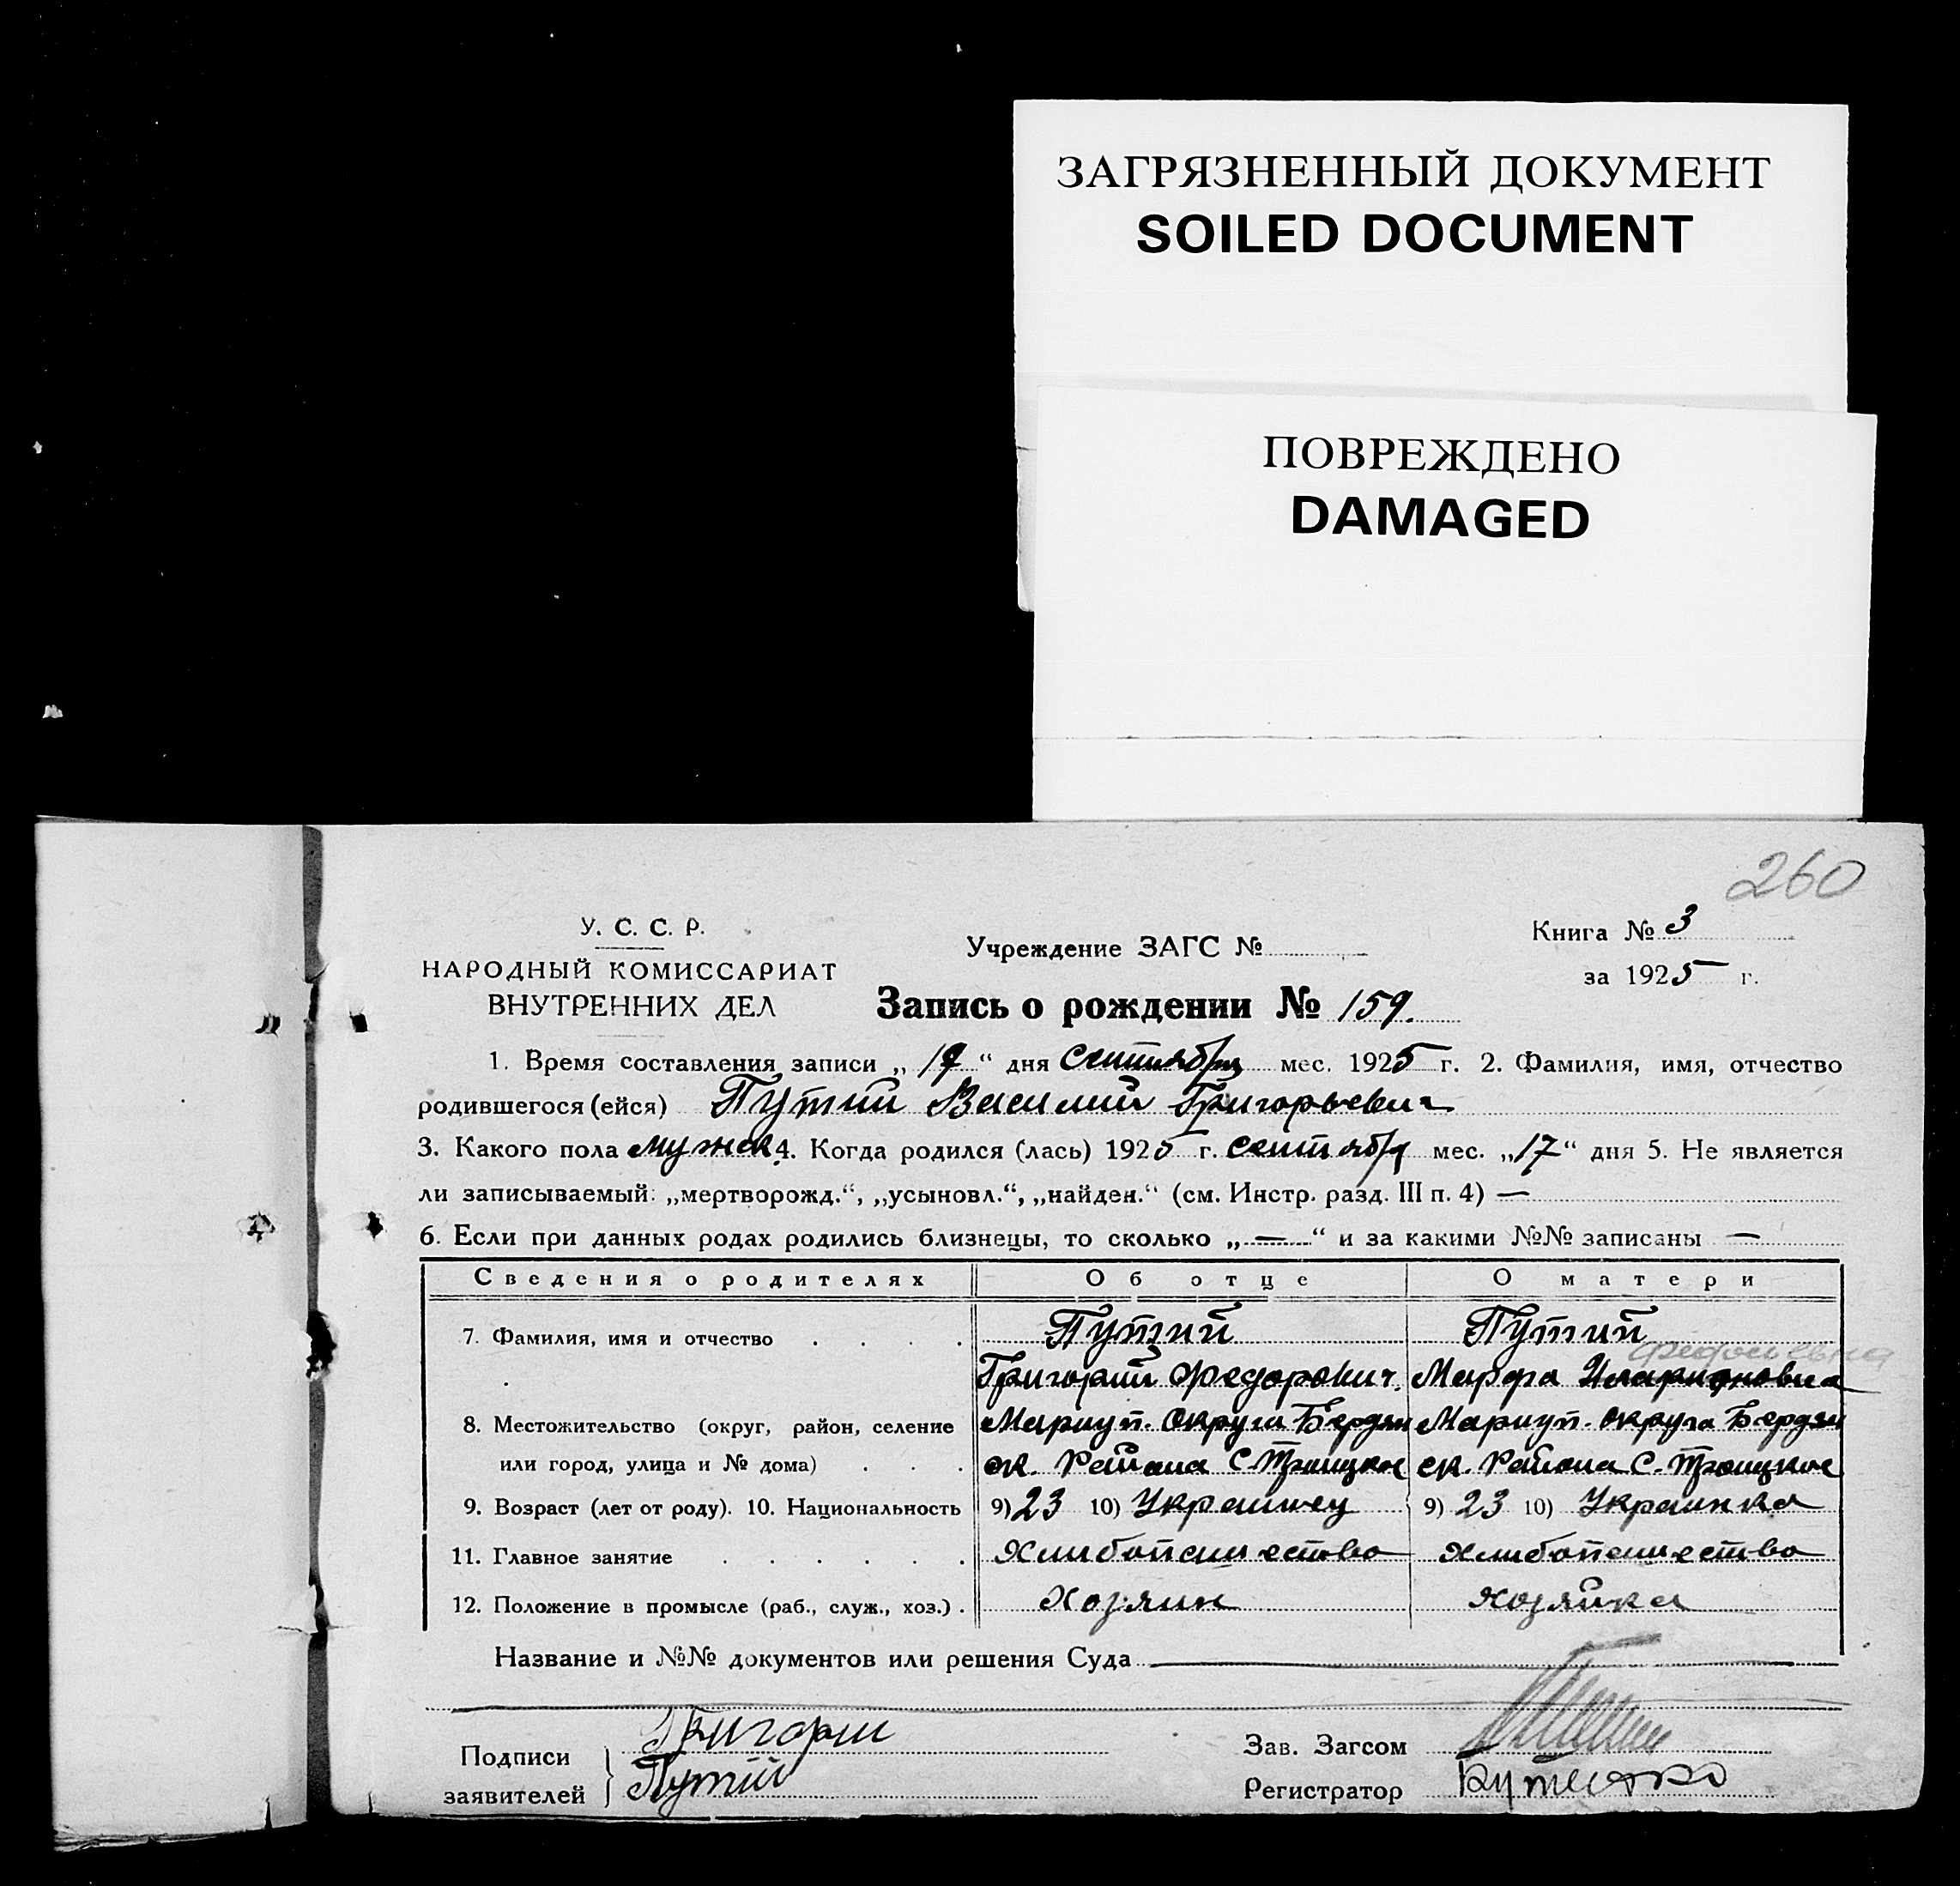 ЗАГРЯЗНЕННЫЙ ДОКУМЕНТ
SOILED DOCUMENT
ПОВРЕЖДЕНО
DAMAGED
260
У. С. С. Р.
НАРОДНЫЙ КОМИССАРИАТ
ВНУТРЕННИХ ДЕЛ
Учреждение ЗАГС №
Книга № 3
за 1925 г.
Запись о рождении № 159.
1. Время составления записи „ 19 “ дня сентября мес. 1925 г. 2. Фамилия, имя, отчество
родившегося (ейся) Путий Василий Григорьевич
3. Какого пола мужск. 4. Когда родился (лась) 1925 г. сентября мес. „17“ дня 5. Не является
ли записываемый: „мертворожд.“, „усыновл.“, „найден.“ (см. Инстр. разд. III п. 4) —
6. Если при данных родах родились близнецы, то сколько „ — “ и за какими №№ записаны —
Сведения о родителях Об отце О матери
7. Фамилия, имя и отчество . . . . Путий Путий
Григорий Федорович. Марфа Иларионовна
8. Местожительство (округ, район, селение Мариуп. Округа Бердян Мариуп. округа Бердян
или город, улица и № дома) . . . ск. Района С. Троицкое ск. Района С. Троицкое
9. Возраст (лет от роду). 10. Национальность 9) 23 10) Украинец 9) 23 10) Украинка
11. Главное занятие . . . . . . Хлибопашество хлибопашество
12. Положение в промысле (раб., служ., хоз.) . Хозяин хозяйка
Название и №№ документов или решения Суда
Подписи заявителей } Григорий
Путий
Зав. Загсом
Регистратор Кутенко